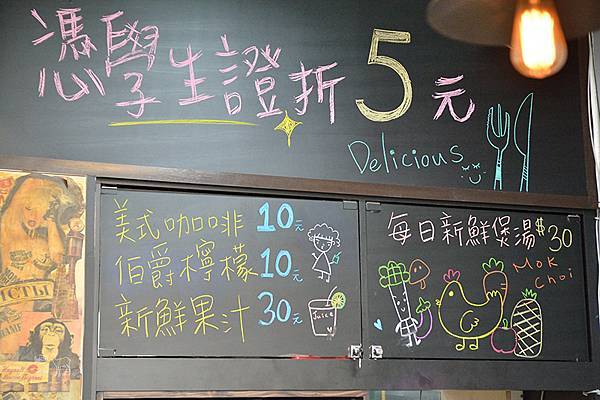 憑學生證折5元
Delicious
美式咖啡 10元
伯爵檸檬 10元
新鮮果汁 30元
Juice
每日新鮮煲湯$30
Mok
Choi